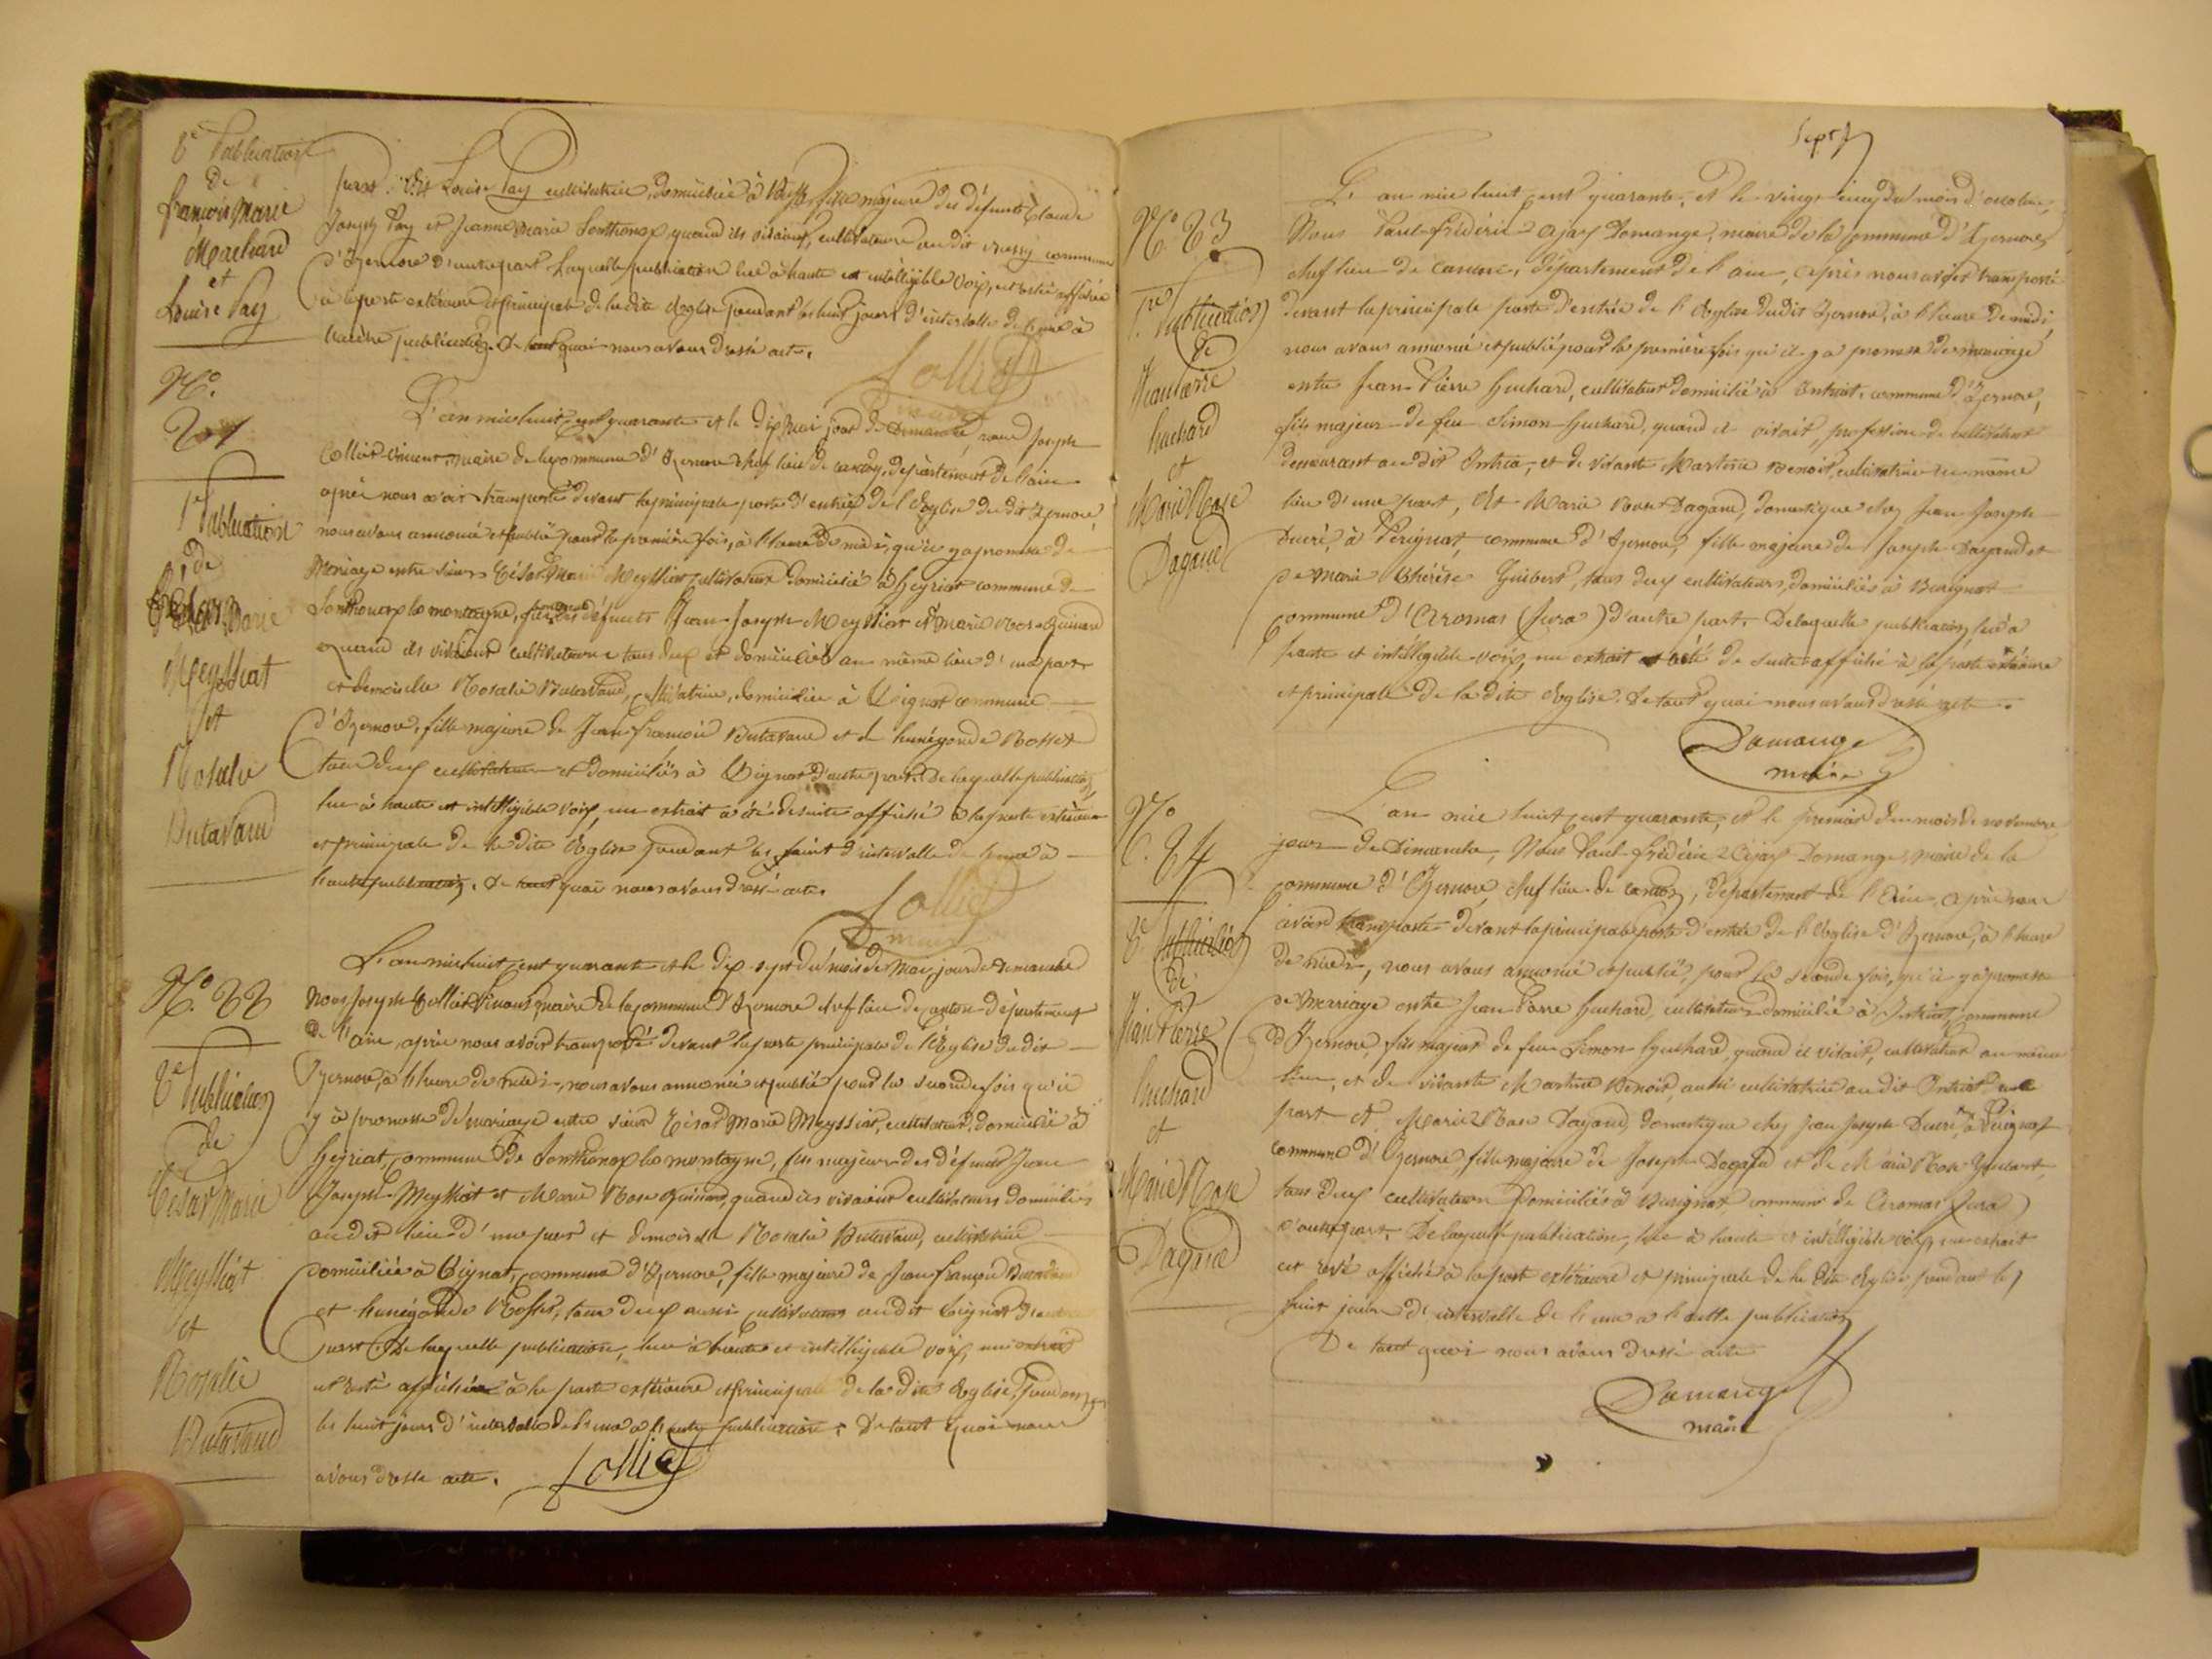 2e Publication
de
françois Marie
Machard
et
Louise Pay
part. Et Louise Pay cultivatrice, domiciliée à fille majeure des défunts Claude
Joseph Pay et Jeanne Marie Sonthonax, quand ils vivaient, cultivateurs au dit commune
d'Izernore d'autre part. Laquelle publication lue à haute et intelligible voix, est resté affichée
à la porte extérieure et principale de la dite Eglise pendant les huit jours d'intervalle de l'une à
l'autre publication. De tout quoi nous avons dressé acte.
Collier
N°.
21
1re Publication
de
César Marie
Meyssiat
et
Rosalie
Butavand
L'an mil huit cent quarante et le dix Mai jour de Dimanche, nous Joseph
Collier Vincent, maire de la commune d'Izernore chef lieu de canton, département de l'ain
après nous avoir transporté devant la principale porte d'entrée de l'Eglise du dit Izernore
nous avons annoncé et publié pour la première fois, à l'heure de midi, qu'il y a promesse de
Mariage entre sieur César Marie Meyssiat cultivateur domicilié à heyriat commune de
Sonthonax la montagne, fils majeur des défunts Jean Joseph Meyssiat et Marie Rose Guinard
quand ils vivaient cultivateurs tous deux et domiciliés au même lieu d'une part
et demoiselle Rosalie Butavand, cultivatrice, domiciliée à Bignat commune
d'Izernore, fille majeure de Jean françois Butavand et de Cunégonde Rosset
tous deux cultivateurs et domiciliés à Bignat d'autre part. De laquelle publication
lue à haute et intelligible voix, un extrait a été de suite affiché à la porte extérieure
et principale de la dite Eglise pendant les huit d'intervalle de l'une à
l'autre publication. De tout quoi nous avons dressé acte.
Collier
maire
N°. 22
2e Publication
de
César Marie
Meyssiat
et
Rosalie
Butavand
L'an mil huit cent quarante et le dix-sept du mois de Mai jour de Dimanche
Nous Joseph Collier Vincent maire de la commune d'Izernore chef lieu de canton département
de l'ain, après nous avoir transporté devant la porte principale de l'Eglise du dit
Izernore à l'heure de midi, nous avons annoncé et publié pour la seconde fois qu'il
y a promesse de mariage entre sieur César Marie Meyssiat, cultivateur, domicilié à
heyriat, commune de Sonthonax la montagne, fils majeur des défunts Jean
Joseph Meyssiat et Marie Rose Guinard, quand ils vivaient cultivateurs domiciliés
au dit lieu d'une part et demoiselle Rosalie Butavand, cultivatrice
domiciliée à Bignat, commune d'Izernore, fille majeure de Jean françois Butavand
et Cunégonde Rosset, tous deux aussi cultivateurs au dit Bignat d'autre
part. De laquelle publication, lue à haute et intelligible voix, un extrait
est resté affiché à la porte extérieure et principale de la dite Eglise, pendant
les huit jours d'intervalle de l'une à l'autre publication. De tout quoi nous
avons dressé acte. Collier
Sept
N°. 23
1re Publication
de
Jean Pierre
huchard
et
Marie Rose
Dagand
L'an mil huit cent quarante, et le vingt cinq du mois d'octobre,
Nous Paul frédéric Ajax Domange, maire de la commune d'Izernore
chef lieu de canton, département de l'ain, après nous avoir transporté
devant la principale porte d'entrée de l'Eglise du dit Izernore, à l'heure de midi,
nous avons annoncé et publié pour la première fois qu'il y a promesse de mariage
entre Jean Pierre huchard, cultivateur domicilié à Intriat, commune d'Izernore,
fils majeur de feu Simon huchard, quand il vivait, profession de cultivateur
demeurant au dit Intria, et de vivante Martine Benoit, cultivatrice au même
lieu d'une part, Et Marie Rose Dagand, domestique chez Jean Joseph
Ducré, à Pérignat, commune d'Izernore, fille majeure de Joseph Dagand et
de Marie thérèse Guibert, tous deux cultivateurs, domiciliés à Burignat
commune d'Aromas (Jura) d'autre part. De laquelle publication, lue à
haute et intelligible voix, un extrait a été de suite affiché à la porte extérieure
et principale de la dite Eglise. De tout quoi nous avons dressé acte.
Domange
maire
N°
24
2e Publication
de
Jean Pierre
huchard
et
Marie Rose
Dagand
L'an mil huit cent quarante, et le premier du mois de novembre
jour de Dimanche, Nous Paul frédéric Ajax Domange, maire de la
commune d'Izernore, chef lieu de canton, département de l'Ain, après nous
avoir transporté devant la principale porte d'entrée de l'Eglise d'Izernore, à l'heure
de midi, nous avons annoncé et publié, pour la seconde fois, qu'il y a promesse
de Mariage entre Jean Pierre huchard, cultivateur domicilié à Intriat, commune
d'Izernore, fils majeur de feu Simon huchard, quand il vivait, cultivateur au même
lieu, et de vivante Martine Benoit, aussi cultivatrice au dit Intriat une
part et Marie Rose Dagand domestique chez Jean Joseph Ducré, à Pérignat
commune d'Izernore, fille majeure de Joseph Dagand et de Marie Rose Guibert,
tous deux cultivateurs domiciliés à Burignat commune de Aromas (Jura)
d'autre part. De laquelle publication, lue à haute et intelligible voix, un extrait
est resté affiché à la porte extérieure et principale de la dite Eglise pendant les
huit jours d'intervalle de l'une à l'autre publication
De tout quoi nous avons dressé acte
Domange
maire